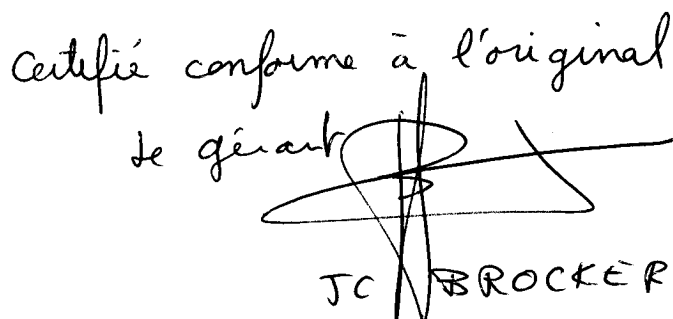 Certifié conforme à l'original
Le gérant
JC BROCKER